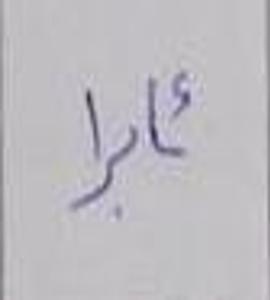 عابرا